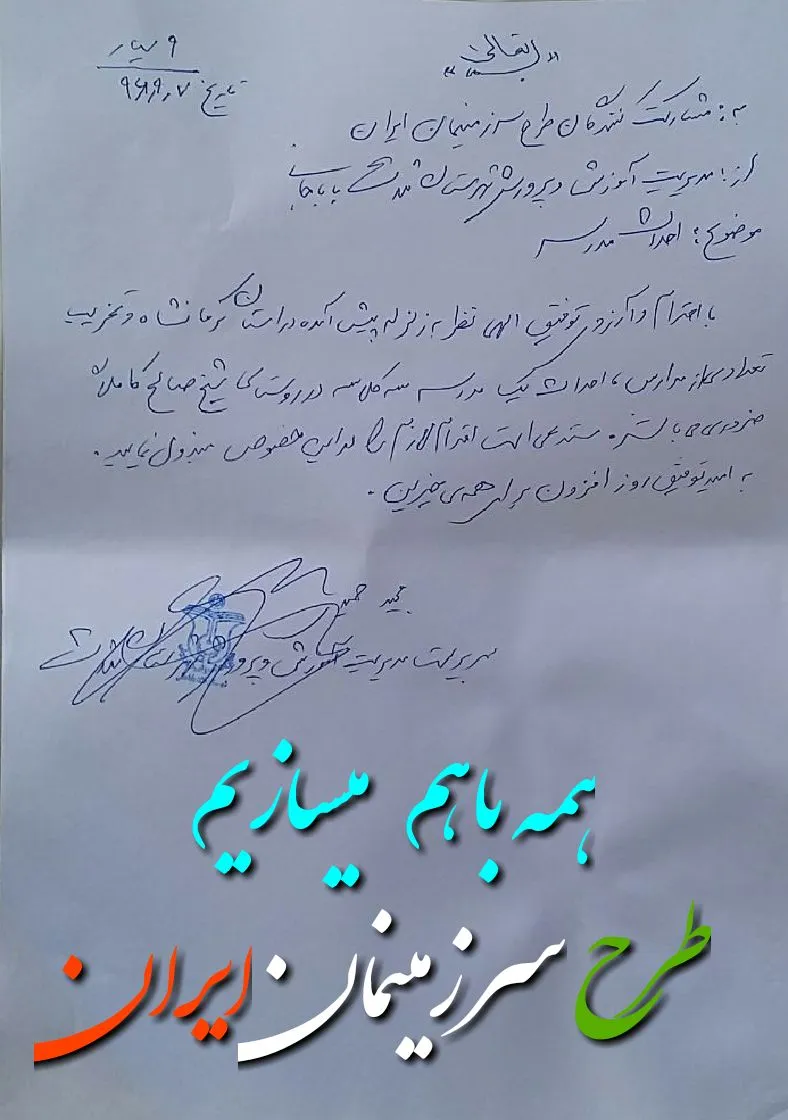 «بسمه تعالی»
تاریخ
به: مشارکت کنندگان طرح سرزمینمان ایران
از: مدیریت آموزش و پرورش شهرستان ثلاث باباجانی
موضوع: احداث مدرسه
با احترام و آرزوی توفیق الهی نظر به زلزله پیش آمده در استان کرمانشاه و تخریب
تعدادی از مدارس، احداث یک مدرسه سه کلاسه در روستای شیخ صالح کاملاً
ضروری می باشد. مستدعی است اقدام لازم را در این خصوص مبذول نمایید.
به امید توفیق روز افزون برای همه ی خیرین.
سرپرست مدیریت آموزش و پرورش شهرستان ثلاث
همه باهم میسازیم
طرح سرزمینمان ایران